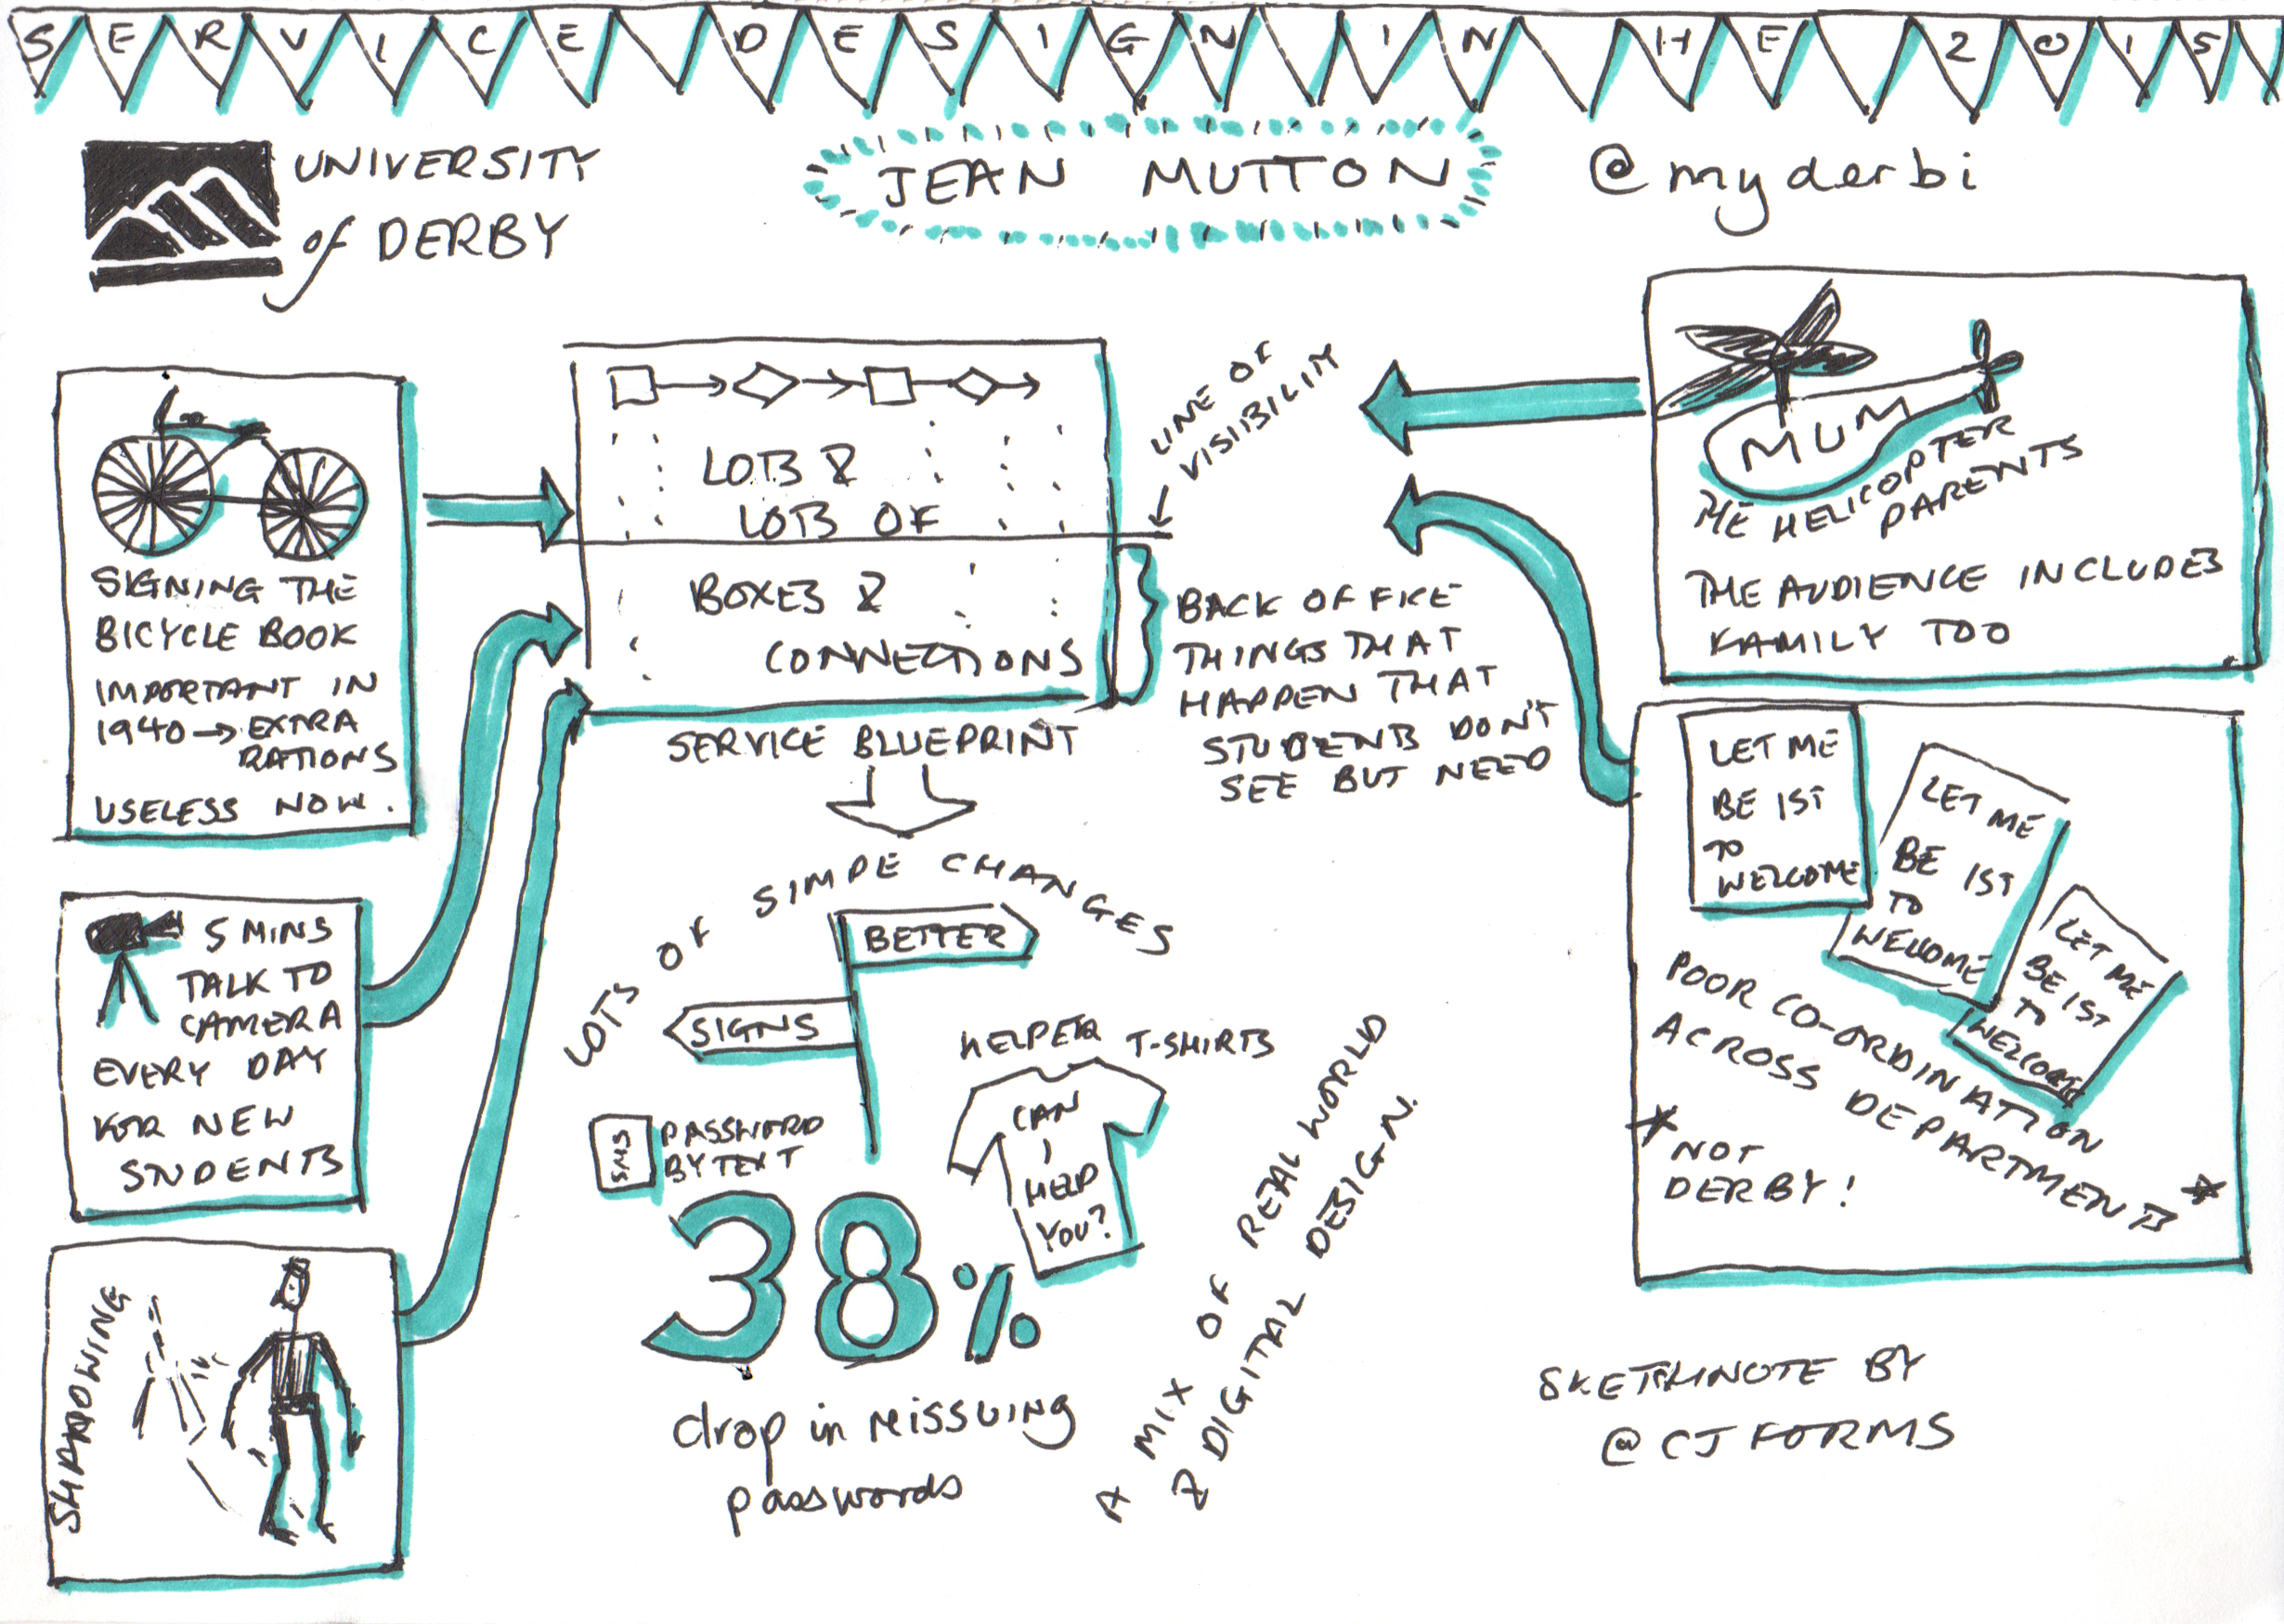 SERVICE DESIGN IN HE 2015
UNIVERSITY
of DERBY
JEAN MUTTON
@myderbi
SIGNING THE
BICYCLE BOOK
IMPORTANT IN
1940 → EXTRA
RATIONS
USELESS NOW.
5 MINS
TALK TO
CAMERA
EVERY DAY
FOR NEW
STUDENTS
SHADOWING
LOTS &
LOTS OF
BOXES &
CONNECTIONS
SERVICE BLUEPRINT
LINE OF
VISIBILITY
BACK OFFICE
THINGS THAT
HAPPEN THAT
STUDENTS DON'T
SEE BUT NEED
LOTS OF SIMPE CHANGES
BETTER
SIGNS
HELPER T-SHIRTS
CAN
I
HELP
YOU?
SMS
PASSWORD
BY TEXT
38%
drop in reissuing
passwords
A MIX OF REAL WORLD
& DIGITAL DESIGN.
MUM
THE HELICOPTER
PARENTS
THE AUDIENCE INCLUDES
FAMILY TOO
LET ME
BE 1ST
TO
WELCOME
LET ME
BE 1ST
TO
WELCOME
LET ME
BE 1ST
TO
WELCOME
POOR CO-ORDINATION
ACROSS DEPARTMENTS *
* NOT
DERBY!
SKETCHNOTE BY
@CJFORMS